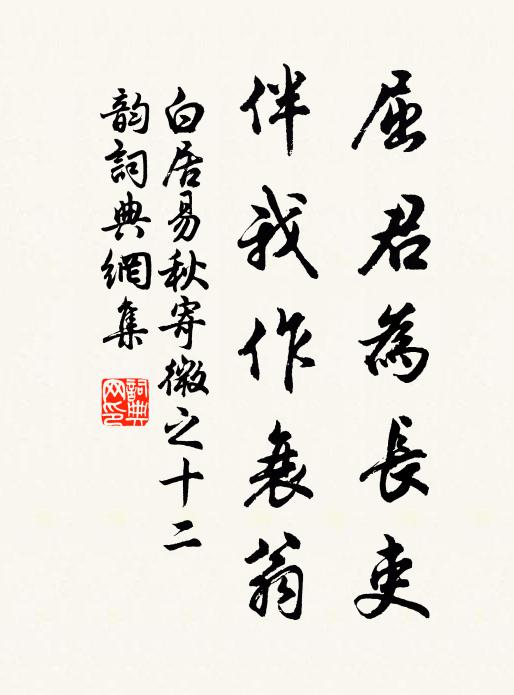 屈君為長吏
伴我作衰翁
白居易秋寄微之十二
韵詞典網集
詞典
网印